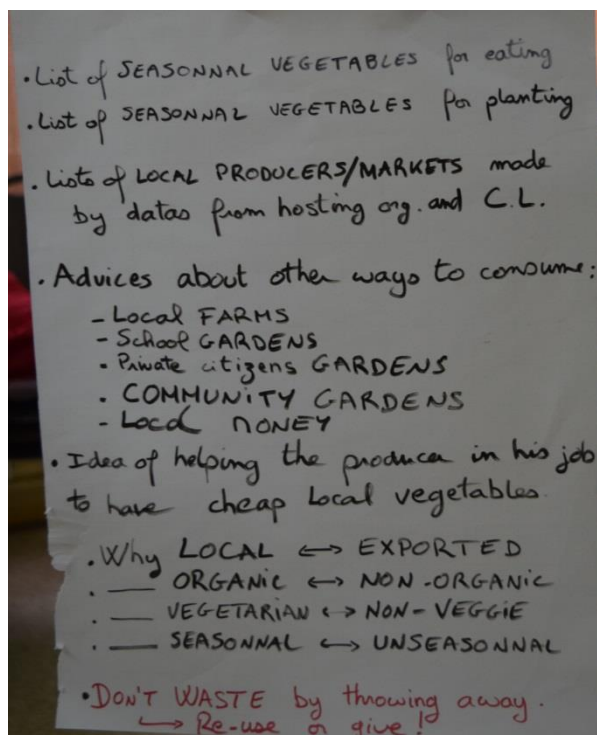 • List of SEASONNAL VEGETABLES for eating
• List of SEASONNAL VEGETABLES for planting
• Lists of LOCAL PRODUCERS/MARKETS made
by datas from hosting org. and C.L.
• Advices about other ways to consume:
- Local FARMS
- School GARDENS
• Private citizens GARDENS
• COMMUNITY GARDENS
- Local MONEY
• Idea of helping the producer in his job
to have cheap local vegetables.
• Why LOCAL ↔ EXPORTED
• ___ ORGANIC ↔ NON-ORGANIC
• ___ VEGETARIAN ↔ NON-VEGGIE
• ___ SEASONNAL ↔ UNSEASONNAL
• DON'T WASTE by throwing away.
↳ Re-use or give!